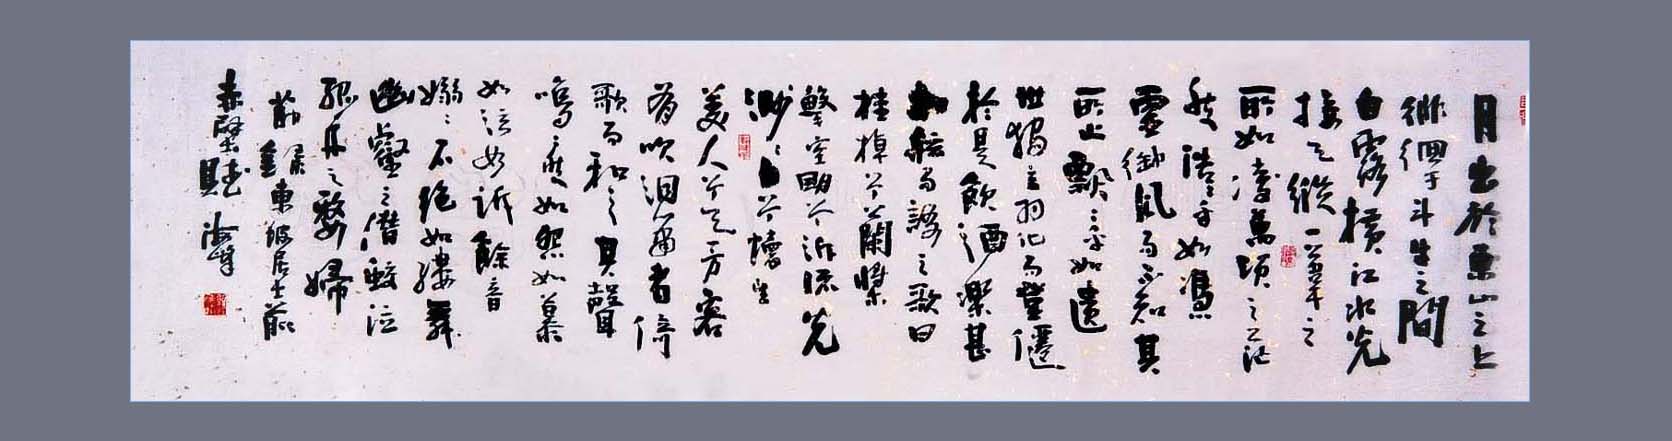 月出於東山之上
徘徊于斗牛之間
白露橫江水光
接天縱一葦之
所如凌萬頃之茫
然浩〻乎如憑
虛御風而不知其
所止飄〻乎如遺
世獨立羽化而登僊
於是飲酒樂甚
扣舷而謌之歌曰
桂棹兮蘭槳
擊空明兮泝流光
渺〻兮懷望
美人兮天一方客
有吹洞簫者倚
歌而和之其聲
嗚〻然如怨如慕
如泣如訴餘音
嫋〻不絕如縷舞
幽壑之潛蛟泣
孤舟之嫠婦
節錄東坡居士前
赤壁賦 海峰